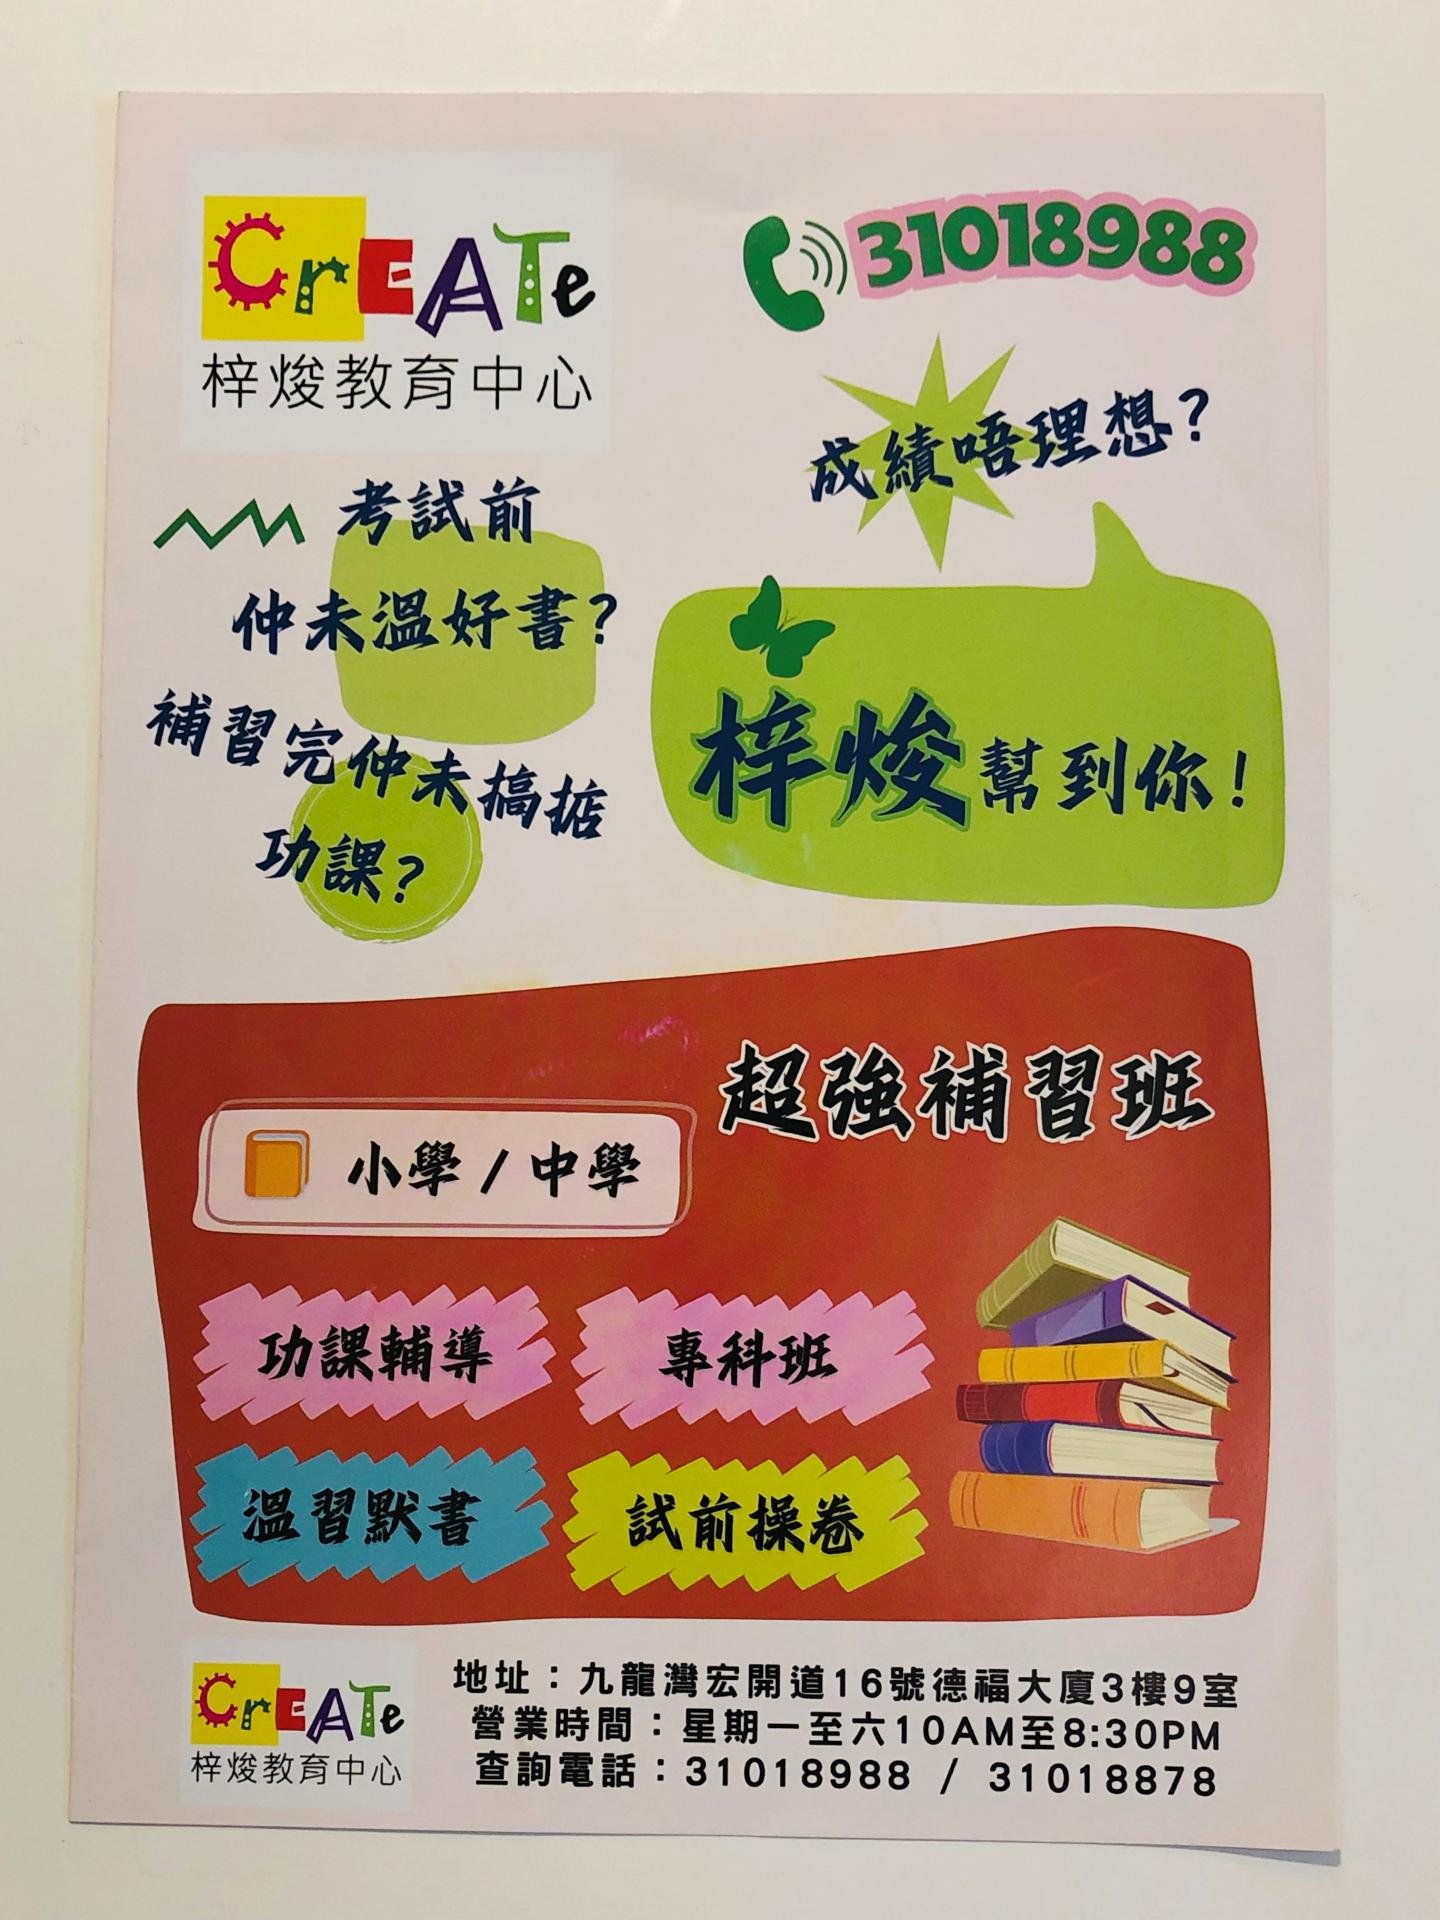 CrEATe
梓焌教育中心
31018988
成績唔理想?
考試前
仲未溫好書?
補習完仲未搞掂
功課?
梓焌幫到你!
超強補習班
小學 / 中學
功課輔導
專科班
溫習默書
試前操卷
CrEATe
梓焌教育中心
地址：九龍灣宏開道16號德福大廈3樓9室
營業時間：星期一至六10AM至8:30PM
查詢電話：31018988 / 31018878